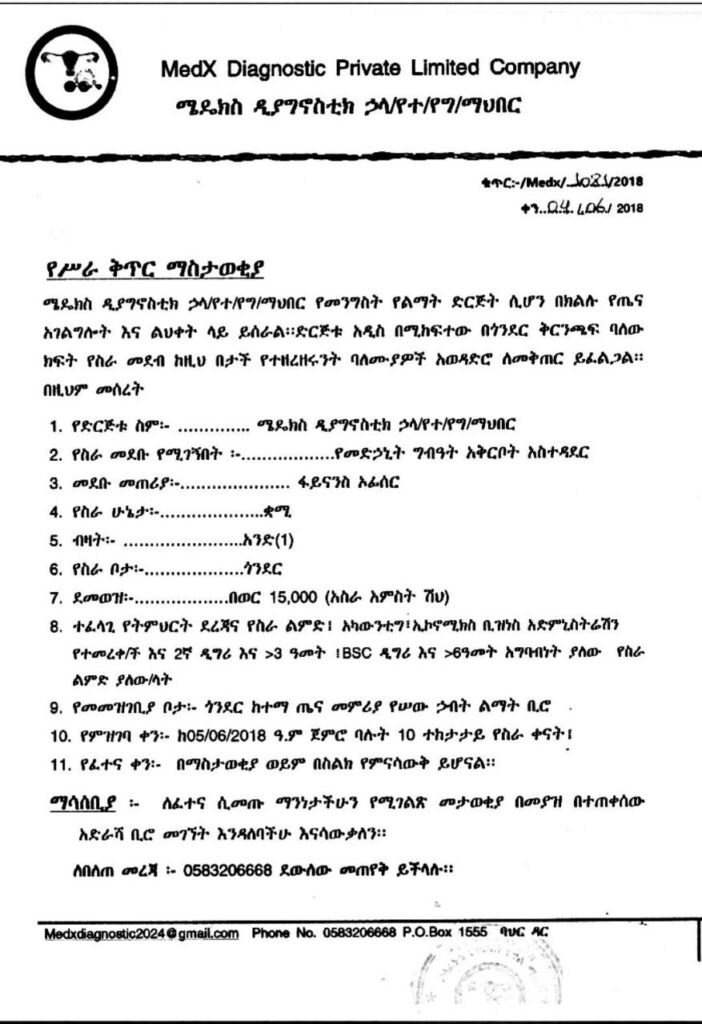 MedX Diagnostic Private Limited Company
ሜዴክስ ዲያግኖስቲክ ኃላ/የተ/የግ/ማህበር
ቁጥር:-/Medx/1021/2018
ቀን..04./06/ 2018
የሥራ ቅጥር ማስታወቂያ
ሜዴክስ ዲያግኖስቲክ ኃላ/የተ/የግ/ማህበር የመንግስት የልማት ድርጅት ሲሆን በክልሉ የጤና
አገልግሎት እና ልህቀት ላይ ይሰራል።ድርጅቱ አዲስ በሚከፍተው በጎንደር ቅርንጫፍ ባለው
ክፍት የስራ መደብ ከዚህ በታች የተዘረዘሩንት ባለሙያዎች አወዳድሮ ለመቅጠር ይፈልጋል።
በዚህም መሰረት
1. የድርጅቱ ስም፡- .............. ሜዴክስ ዲያግኖስቲክ ኃላ/የተ/የግ/ማህበር
2. የስራ መደቡ የሚገኝበት ፡-..................የመድኃኒት ግብዓት አቅርቦት አስተዳደር
3. መደቡ መጠሪያ፡-..................... ፋይናንስ ኦፊሰር
4. የስራ ሁኔታ፡-....................ቋሚ
5. ብዛት፡- .......................አንድ(1)
6. የስራ ቦታ፡-...................ጎንደር
7. ደመወዝ፡-...................በወር 15,000 (አስራ አምስት ሽህ)
8. ተፈላጊ የትምህርት ደረጃና የስራ ልምድ፤ አካውንቲግ፣ኢኮኖሚክስ ቢዝነስ አድምኒስትሬሽን
የተመረቀ/ች እና 2ኛ ዲግሪ እና >3 ዓመት ፣BSC ዲግሪ እና >6ዓመት አግባብነት ያለው የስራ
ልምድ ያለው/ላት
9. የመመዝገቢያ ቦታ፡- ጎንደር ከተማ ጤና መምሪያ የሠው ኃብት ልማት ቢሮ
10. የምዝገባ ቀን፡- ከ05/06/2018 ዓ.ም ጀምሮ ባሉት 10 ተከታታይ የስራ ቀናት፤
11. የፈተና ቀን፡- በማስታወቂያ ወይም በስልክ የምናሳውቅ ይሆናል።
ማሳሰቢያ ፡- ለፈተና ሲመጡ ማንነታችሁን የሚገልጽ መታወቂያ በመያዝ በተጠቀሰው
አድራሻ ቢሮ መገኘት እንዳለባችሁ እናሳውቃለን።
ለበለጠ መረጃ ፡- 0583206668 ደውለው መጠየቅ ይችላሉ።
Medxdiagnostic2024@gmail.com Phone No. 0583206668 P.O.Box 1555 ባህር ዳር